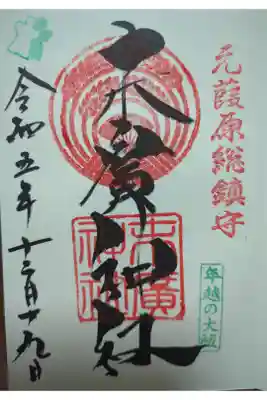 元葭原総鎮守
年越の大祓
末廣神社
末廣神社
令和五年十二月十九日